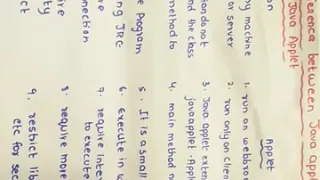 erence between Java appl
Java Applet
ion
ny machine
or server
tion do not
nd the class
method to
e program
ng JRE
re
nnection
ire
ity
ct
Applet
1. run on webbrows
2. run only on clien
3. Java applet exten
javaapplet.Appl
4. main method n
5. It is a small
6. Execute in w
7. require inte
to execut
8. require more
9. restrict lib
etc for sec